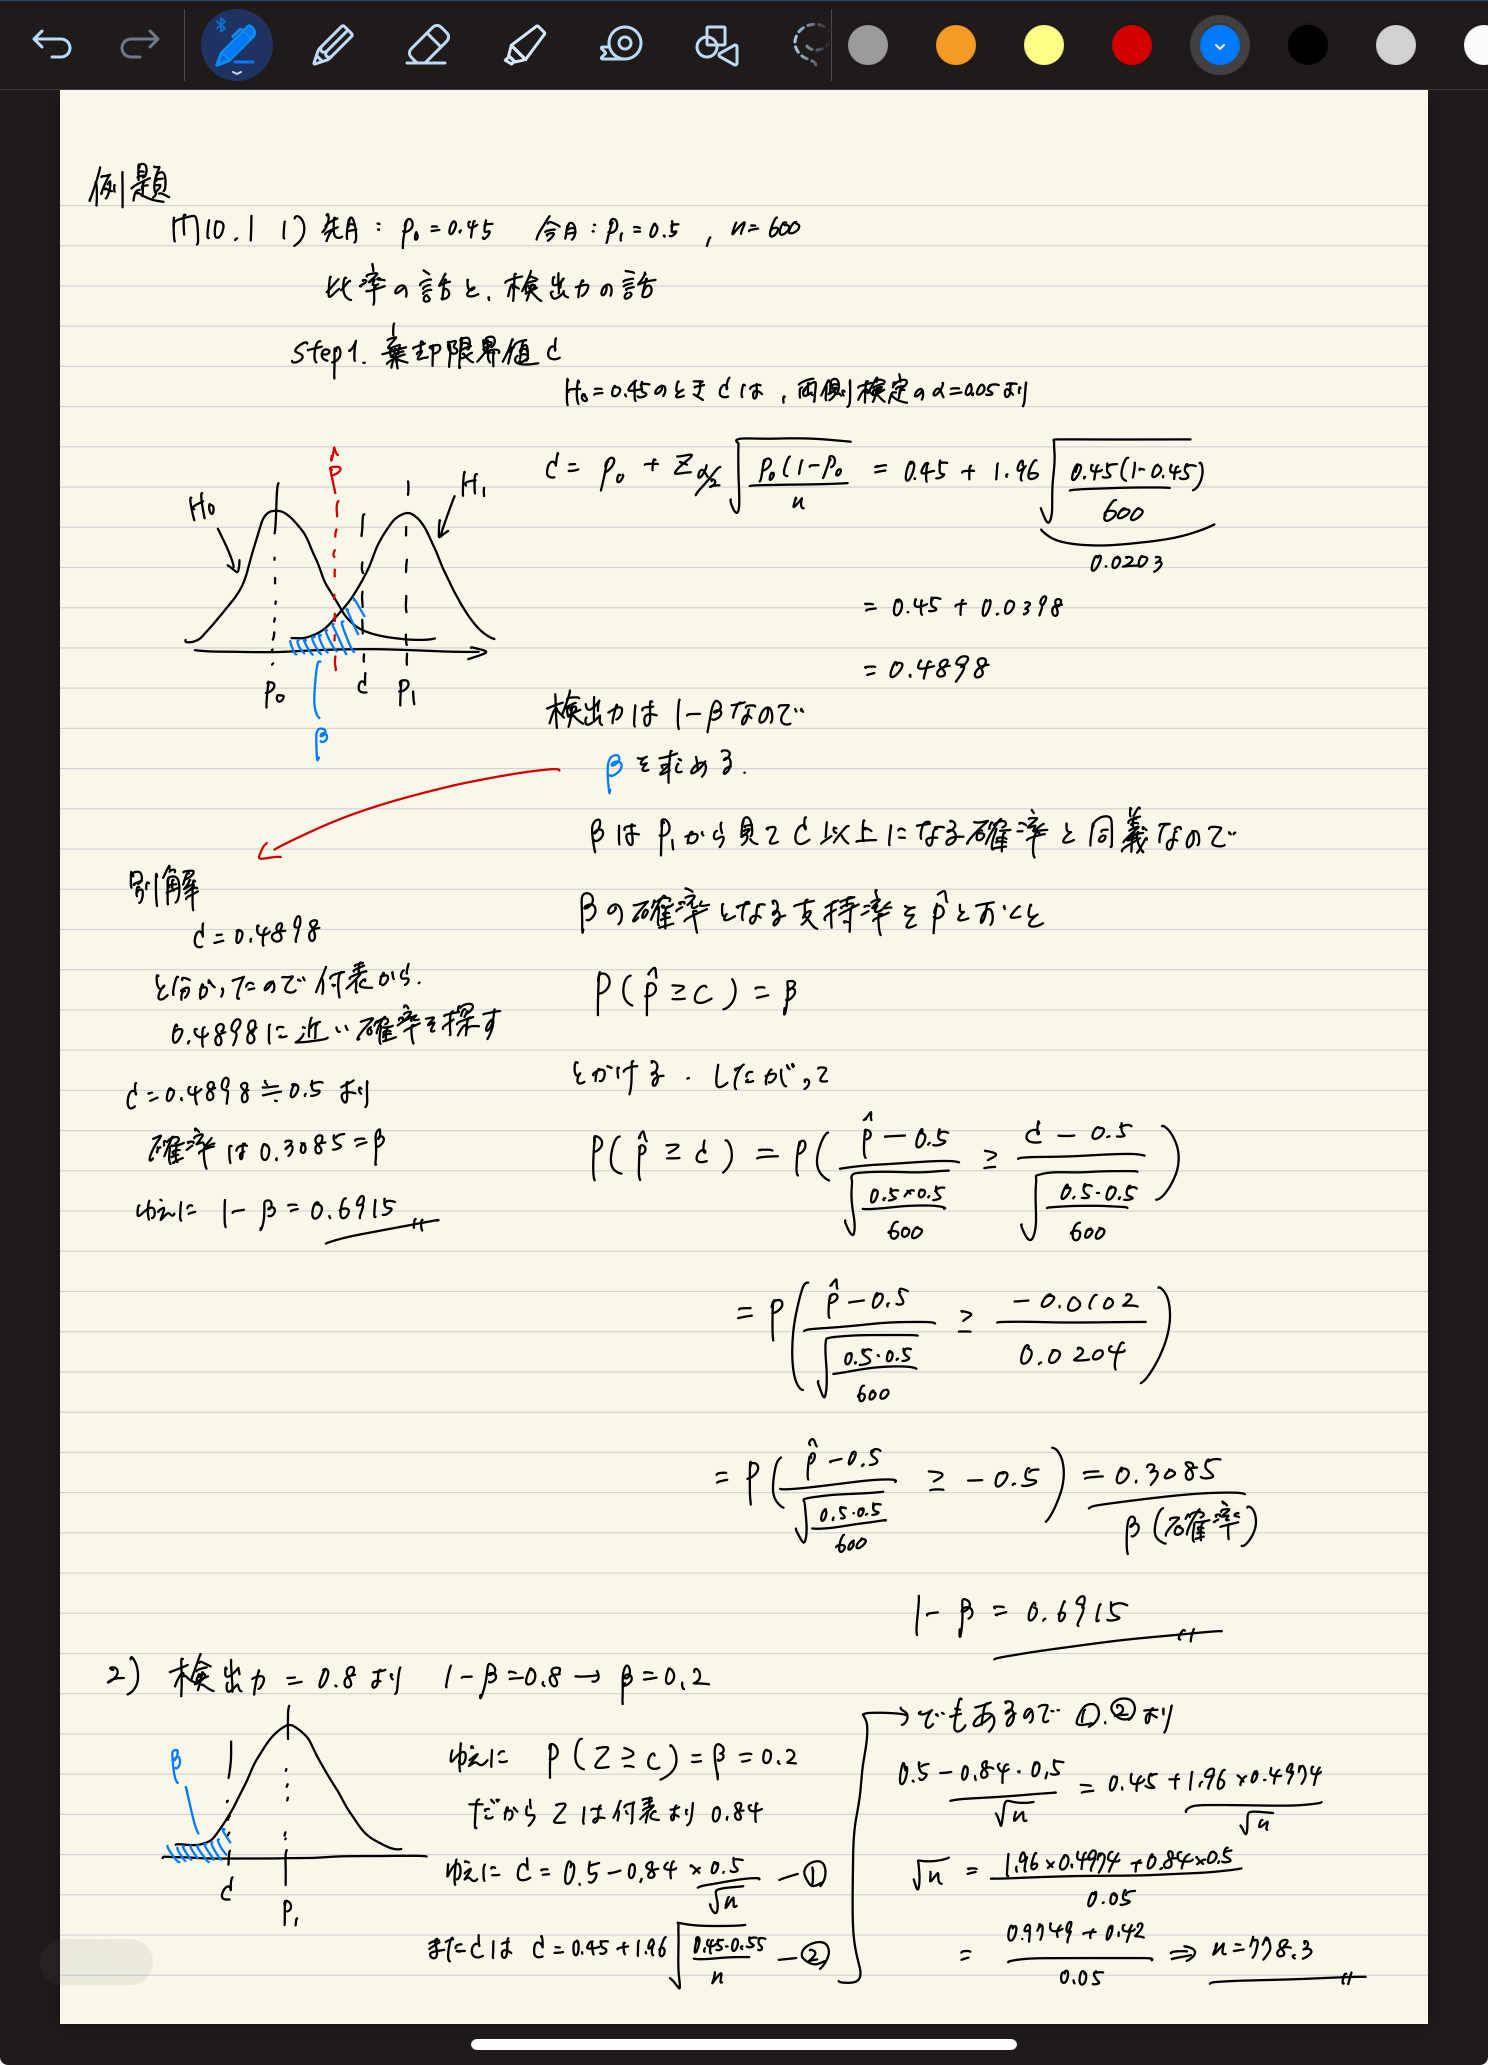 例題
問10.1 1) 先月: P₀=0.45 今月: P₁=0.5 , n=600
比率の話と、検出力の話
Step1. 棄却限界値 c
H₀=0.45のとき cは, 両側検定のα=0.05より
c = P₀ + Z_α/2 √(P₀(1-P₀/n) = 0.45 + 1.96 √(0.45(1-0.45)/600)
0.0203
= 0.45 + 0.0398
= 0.4898
H₀
P̂
H₁
P₀
c
P₁
β
検出力は 1-βなので
βを求める.
βは P₁から見て c以上になる確率と同義なので
βの確率となる支持率を p̂とおくと
P(p̂ ≥ c) = β
とかける. したがって
P(p̂ ≥ c) = P( (p̂ - 0.5)/√(0.5×0.5/600) ≥ (c - 0.5)/√(0.5・0.5/600) )
= P( (p̂ - 0.5)/√(0.5・0.5/600) ≥ -0.0102/0.0204 )
= P( (p̂ - 0.5)/√(0.5・0.5/600) ≥ -0.5 ) = 0.3085
β (確率)
1-β = 0.6915
別解
c=0.4898
と分かったので 付表から.
0.4898に近い確率を探す
c=0.4898≒0.5 より
確率は0.3085=β
ゆえに 1-β=0.6915
2) 検出力 = 0.8 より 1-β=0.8 → β=0.2
β
c
P₁
ゆえに P(Z≥c)=β=0.2
だから Zは付表より 0.84
ゆえに c=0.5-0.84×0.5/√n —①
またcは c=0.45+1.96√(0.45・0.55/n) —②
→でもあるので ①.②より
0.5-0.84・0.5/√n = 0.45+1.96×0.4974/√n
√n = (1.96×0.4974+0.84×0.5)/0.05
= (0.9749+0.42)/0.05 ⇒ n=778.3